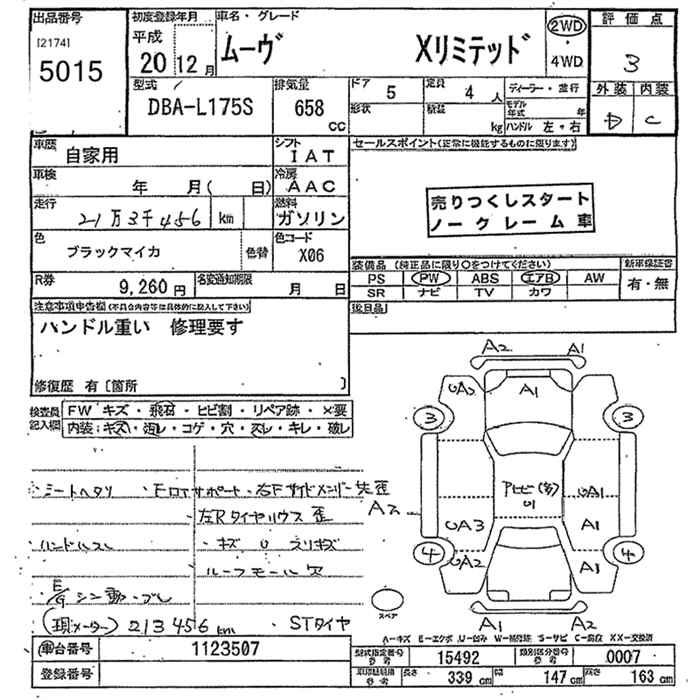 出品番号 初度登録年月 車名・グレード 評価点
[2174] 平成 ムーヴ Xリミテッド 2WD ・ 4WD 3
5015 20 12月
型式 排気量 ドア 5 定員 4 人 ディーラー・並行 外装 内装
DBA-L175S 658 CC 形状 積載 kg モデル年式 年 D C
ハンドル 左・右
車歴 自家用 シフト IAT セールスポイント(正常に機能するものに限ります)
車検 年 月( 日) 冷房 AAC
走行 21万3千456 km 燃料 ガソリン 売りつくしスタート
ノークレーム車
色 ブラックマイカ 色替 色コード X06
装備品 (純正品に限り○をつけてください) 新車保証書
R券 9,260円 名変通知期限 月 日 PS PW ABS エアB AW 有・無
SR ナビ TV カワ
注意事項申告欄(不具合内容等は具体的に記入して下さい) 後日品
ハンドル重い 修理要す
修復歴 有〔箇所 〕
検査員記入欄 FW キズ・飛石・ヒビ割・リペア跡・×要
内装:キズ・汚レ・コゲ・穴・スレ・キレ・破レ
A2 A1
UA2 A1
3 3
シートヘタリ ・右Fサイドメンバー先歪 A2 アヒビ(多) U1 UA1
左Rタイヤハウス歪 UA3 A1
ハンドルスレ ・キズ U スリキズ 4 UA2 A1 4
ルーフモール欠
E/G シン動・ブレ スペア
(現メーター) 213456km ・STタイヤ A1 A2
A−キズ E−エクボ U−凹み W−補修跡 S−サビ C−腐食 XX−交換済
車台番号 1123507 型式指定番号 参考 15492 類別区分番号 参考 0007
登録番号 車両諸規格 参考 長さ 339 cm 幅 147 cm 高さ 163 cm